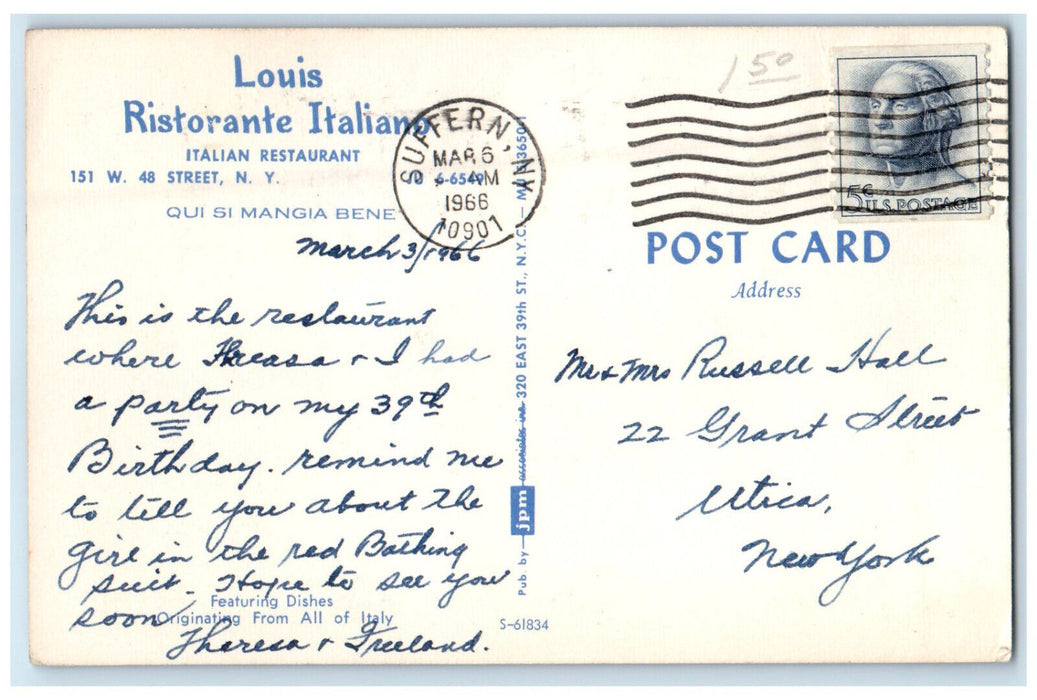 Louis
Ristorante Italiano
ITALIAN RESTAURANT
151 W. 48 STREET, N. Y.
QUI SI MANGIA BENE
SUFFERN, NY
MAR 6
AM
1966
10901
1 50
5¢ U.S. POSTAGE
POST CARD
Address
March 3/1966
This is the restaurant
where Threasa + I had
a party on my 39th
Birthday. remind me
to tell you about the
girl in the red Bathing
suit. Hope to see you
soon
Theresa + Freeland.
Featuring Dishes
Originating From All of Italy
Pub. by jpm associates inc. 320 EAST 39th ST., N.Y.C.
S-61834
Mr + Mrs Russell Hall
22 Grant Street
Utica,
New York